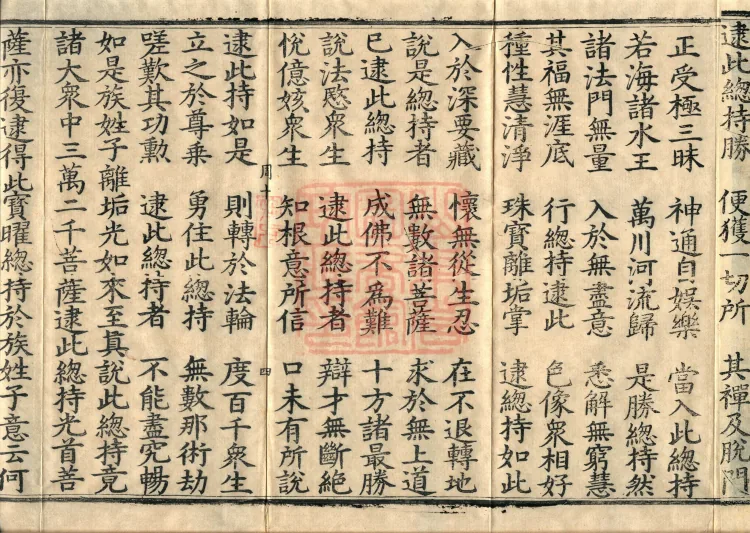 逮此緫持勝　便獲一切所　其禪及脫門
正受極三昧　神通自娛樂　當入此緫持
若海諸水王　萬川河流歸　是勝緫持然
諸法門無量　入於無盡意　悉解無窮慧
其福無涯底　行緫持逮此　色像衆相好
種性慧清淨　珠寶離垢掌　逮緫持如此
入於深要藏　懷無從生忍　在不退轉地
說是緫持者　無數諸菩薩　求於無上道
已逮此緫持　成佛不爲難　十方諸最勝
說法愍衆生　逮此緫持者　辯才無斷絕
恱億姟衆生　知根意所信　口未有所說
周十　四
逮此持如是　則轉於法輪　度百千衆生
立之於尊乘　勇住此緫持　無數那術劫
嗟歎其功勲　逮此緫持者　不能盡究暢
如是族姓子離垢光如來至真說此緫持竟
諸大衆中三萬二千菩薩逮此緫持光首菩
薩亦復逮得此寶曜緫持於族姓子意云何